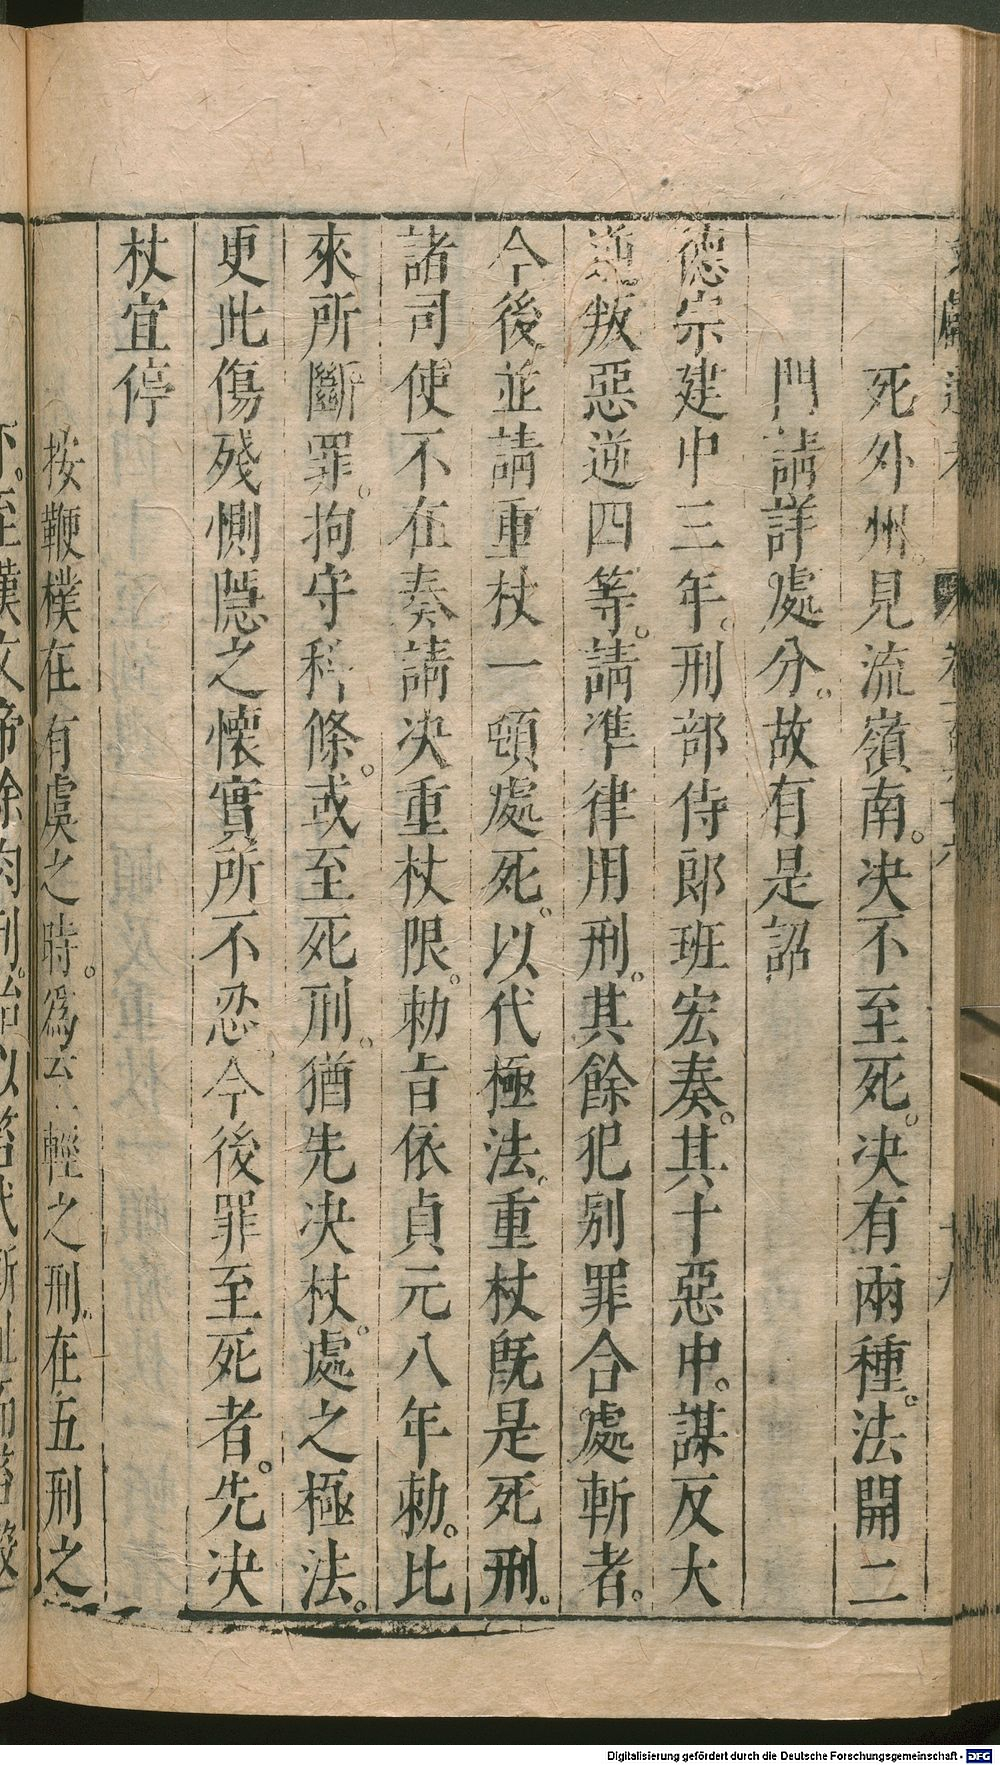 死外州。見流嶺南。决不至死。决有兩種。法開二
門請詳處分。故有是詔
德宗建中三年。刑部侍郎班宏奏。其十惡中。謀反大
逆叛惡逆四等。請準律用刑。其餘犯别罪合處斬者。
今後並請重杖一頓處死。以代極法。重杖旣是死刑。
諸司使不在奏請决重杖限。勅旨依貞元八年勅。比
來所斷罪。拘守科條。或至死刑。猶先决杖。處之極法。
更此傷殘惻隱之懷實所不忍。今後罪至死者。先决
杖宜停
按鞭樸在有虞之時。爲至輕之刑。在五刑之
Digitalisierung gefördert durch die Deutsche Forschungsgemeinschaft - DFG